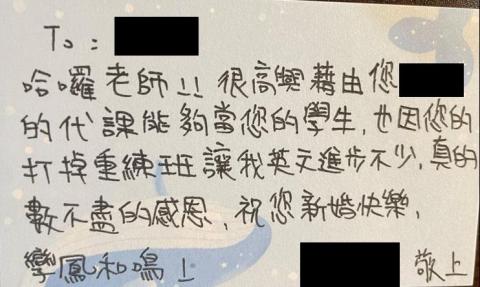 To:
哈囉老師!! 很高興藉由您
的代課能夠當您的學生,也因您的
打掉重練班讓我英文進步不少,真的
數不盡的感恩,祝您新婚快樂,
鸞鳳和鳴! 敬上